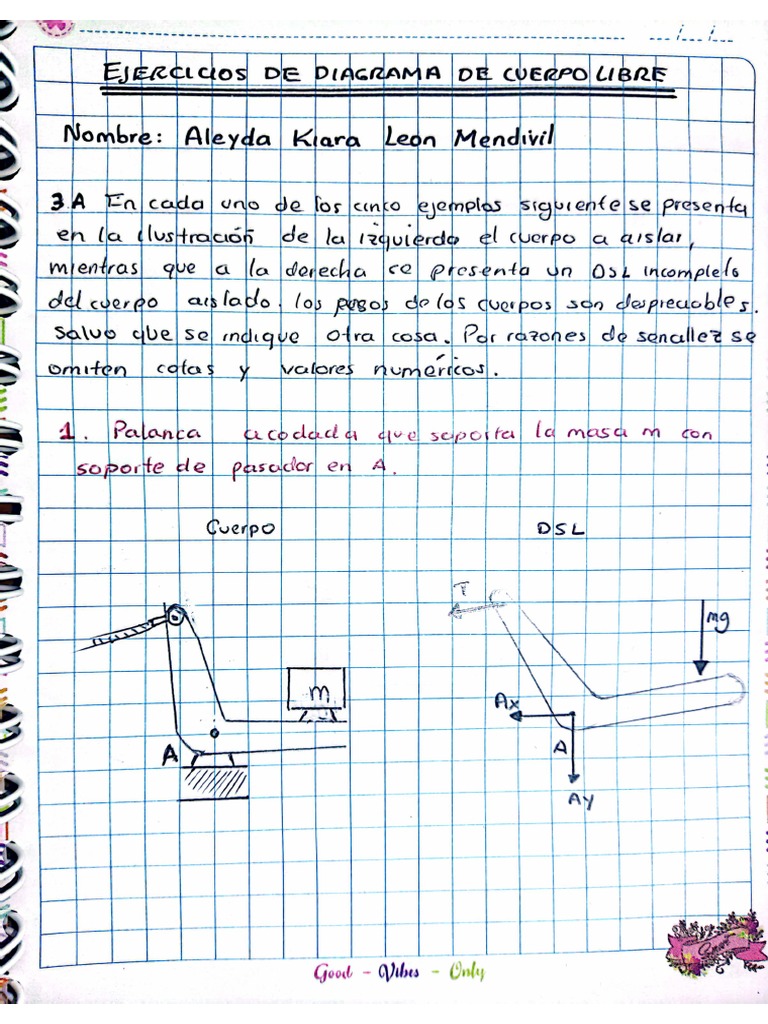 EJERCICIOS DE DIAGRAMA DE CUERPO LIBRE
Nombre: Aleyda Kiara Leon Mendivil
3.A En cada uno de los cinco ejemplos siguiente se presenta
en la ilustración de la izquierda el cuerpo a aislar,
mientras que a la derecha se presenta un DSL incompleto
del cuerpo aislado. los pesos de los cuerpos son despreciables.
salvo que se indique otra cosa. Por razones de sencillez se
omiten cotas y valores numéricos.
1. Palanca acodada que soporta la masa m con
soporte de pasador en A.
Cuerpo DSL
T
mg
m
Ax
A A
Ay
Good - Vibes - Only